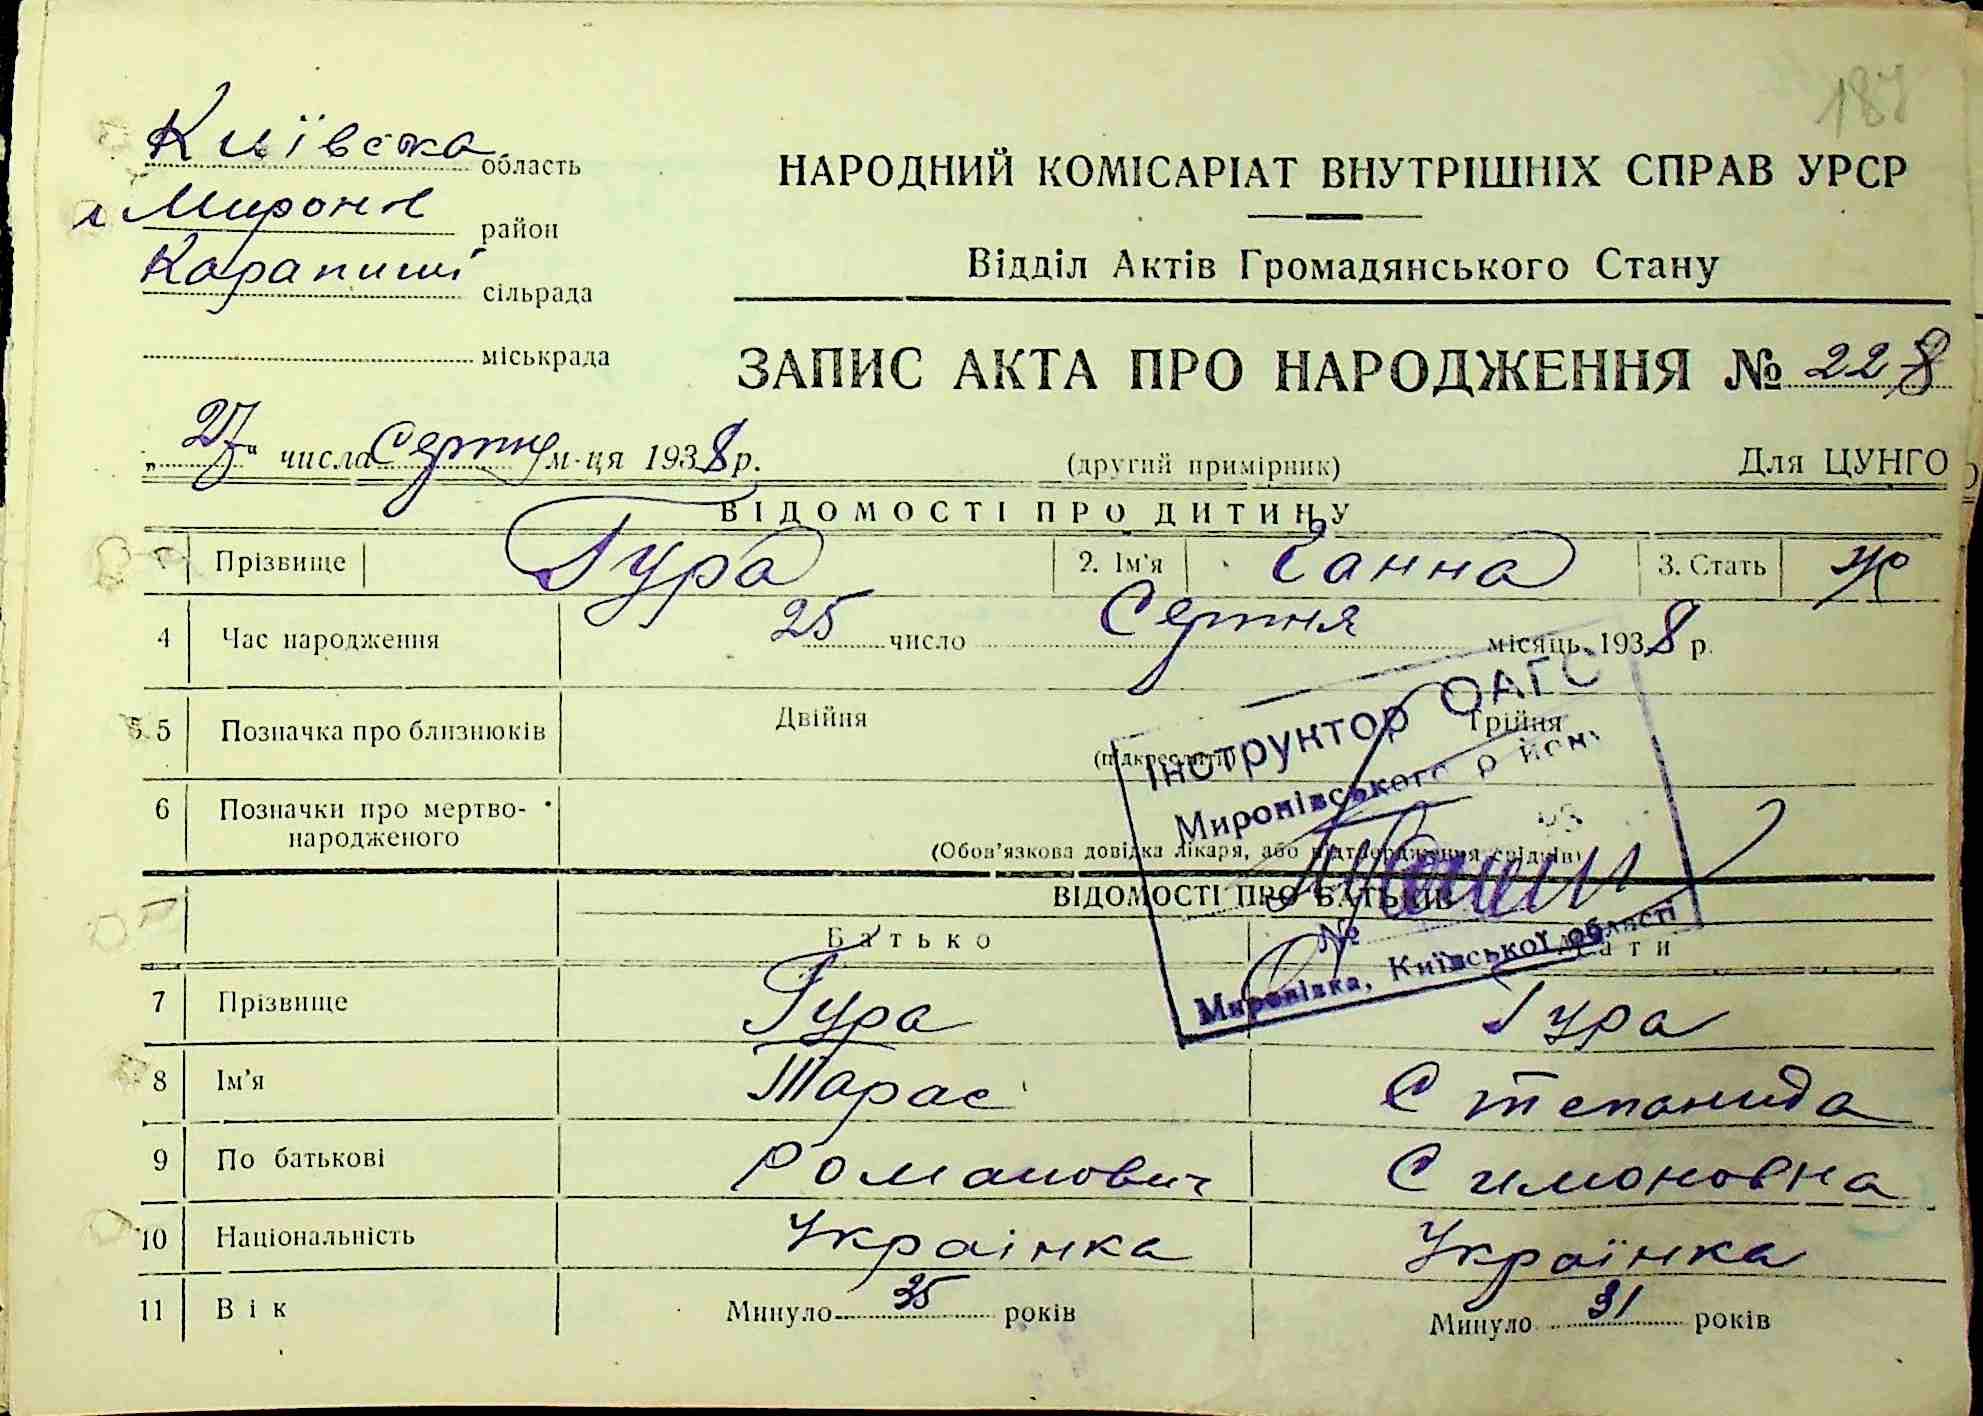 187
Київська область
Миронів район
Карапиші сільрада
міськрада
НАРОДНИЙ КОМІСАРІАТ ВНУТРІШНІХ СПРАВ УРСР
Відділ Актів Громадянського Стану
ЗАПИС АКТА ПРО НАРОДЖЕННЯ № 228
„27“ числа Серпня м-ця 1938 р.
(другий примірник)
Для ЦУНГО
ВІДОМОСТІ ПРО ДИТИНУ
Прізвище Гура 2. Ім'я Ганна 3. Стать ж
4 Час народження 25 число Серпня місяць 1938 р.
5 Позначка про близнюків Двійня Трійня
(підкреслити)
6 Позначки про мертво-
народженого
(Обов'язкова довідка лікаря, або підтвердження свідків)
Інструктор ОАГС
Миронівського району
№
Миронівка, Київської області
ВІДОМОСТІ ПРО БАТЬКІВ
Батько Мати
7 Прізвище Гура Гура
8 Ім'я Тарас Степанида
9 По батькові Романович Симоновна
10 Національність Українка Українка
11 Вік Минуло 35 років Минуло 31 років